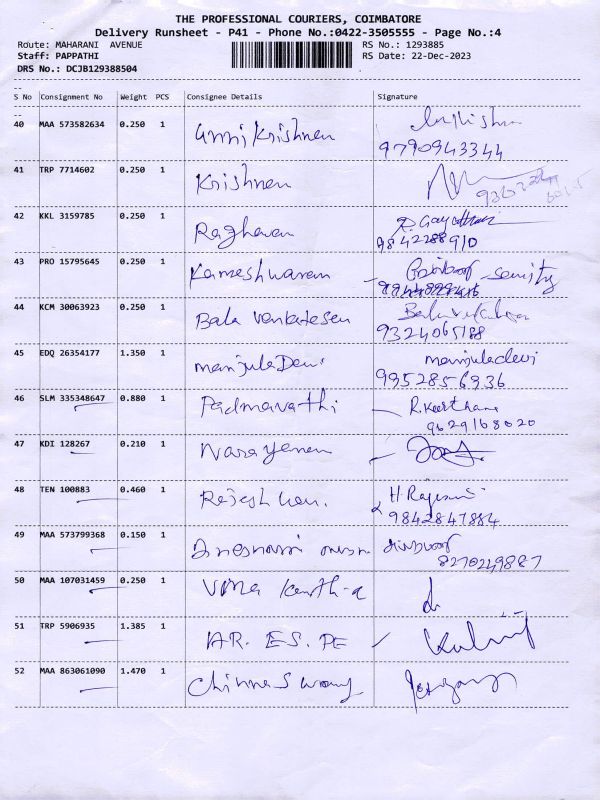 THE PROFESSIONAL COURIERS, COIMBATORE
Delivery Runsheet - P41 - Phone No.:0422-3505555 - Page No.:4
Route: MAHARANI AVENUE RS No.: 1293885
Staff: PAPPATHI RS Date: 22-Dec-2023
DRS No.: DCJB129388504
--
S No Consignment No Weight PCS Consignee Details Signature
--
40 MAA 573582634 0.250 1 Unni Krishnen
9790943344
41 TRP 7714602 0.250 1 Krishnen
42 KKL 3159785 0.250 1 Raghaven R. Gayathri
9842288910
43 PRO 15795645 0.250 1 Kameshwaren
44 KCM 30063923 0.250 1 Bala Venkatesen
9324065188
45 EDQ 26354177 1.350 1 manjula Devi manjuladevi
9952856936
46 SLM 335348647 0.880 1 Padmavathi R. Keerthana
9629168020
47 KDI 128267 0.210 1 Narayenen
48 TEN 100883 0.460 1 H. Rajeswari
9842847884
49 MAA 573799368 0.150 1
8270249887
50 MAA 107031459 0.250 1
51 TRP 5906935 1.385 1 AR. ES. PE
52 MAA 863061090 1.470 1 Chinna Swamy